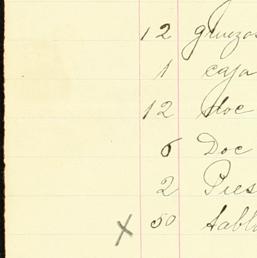 12 gruezas
1 caja
12 doc
6 Doc
2 Pies
x 50 tabl